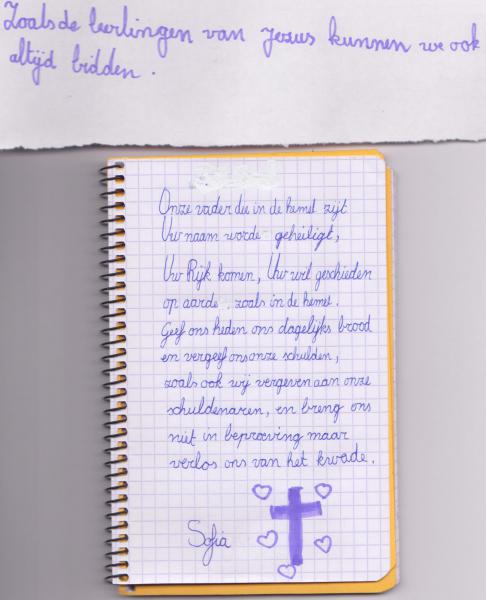 Zoals de leerlingen van Jezus kunnen we ook
altijd bidden.
Onze vader die in de hemel zijt
Uw naam worde geheiligt,
Uw Rijk komen, Uw wil geschieden
op aarde zoals in de hemel.
Geef ons heden ons dagelijks brood
en vergeef ons onze schulden,
zoals ook wij vergeven aan onze
schuldenaren, en breng ons
niet in beproeving maar
verlos ons van het kwade.
Sofia